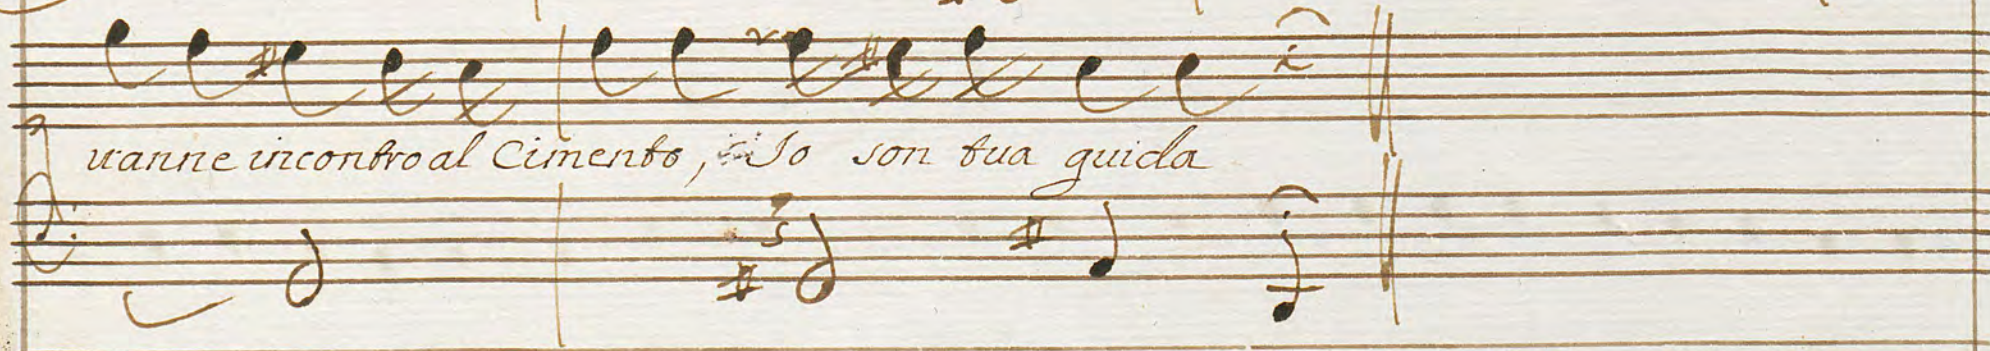 vanne incontro al Cimento, Io son tua guida